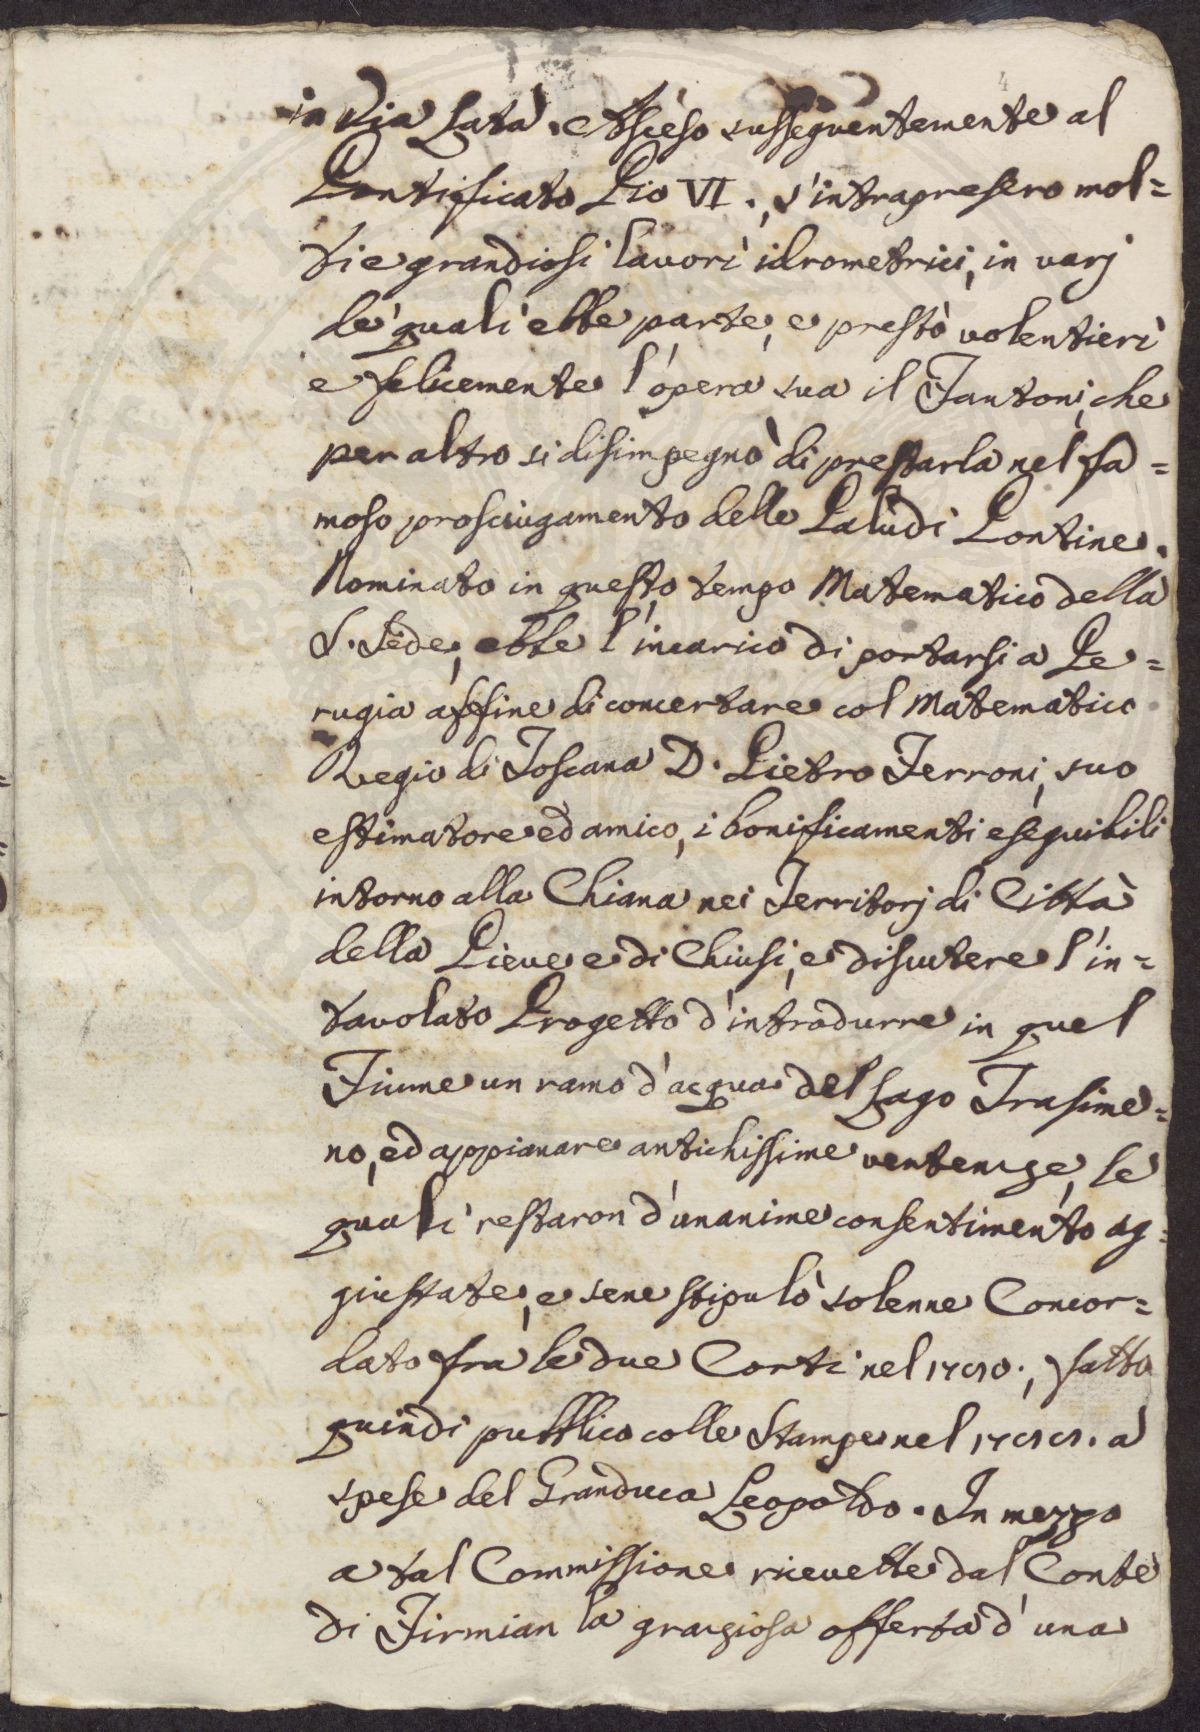 in Via Lata. Asceso susseguentemente al
Pontificato Pio VI., s'intrapresero mol=
ti e grandiosi lavori idrometrici, in varj
de' quali ebbe parte, e prestò volentieri
e felicemente l'opera sua il Fantoni, che
per altro si disimpegnò di prestarla nel fa=
moso prosciugamento delle Paludi Pontine.
Nominato in questo tempo Matematico della
S. Sede, ebbe l'incarico di portarsi a Pe=
rugia affine di concertare col Matematico
Regio di Toscana D. Pietro Ferroni, suo
estimatore ed amico, i bonificamenti eseguibili
intorno alla Chiana nei Territorj di Città
della Pieve e di Chiusi, e discutere l'in=
tavolato Progetto d'introdurre in quel
Fiume un ramo d'acqua del Lago Trasime=
no, ed appianare antichissime vertenze, le
quali restaron d'unanime consentimento ag=
giustate, e sene stipulò solenne Concor=
dato fra le due Corti nel fatto
quindi pubblico colle Stampe nel a
spese del Granduca Leopoldo. In mezzo
a tal Commissione ricevette dal Conte
di Firmian la graziosa offerta d'una